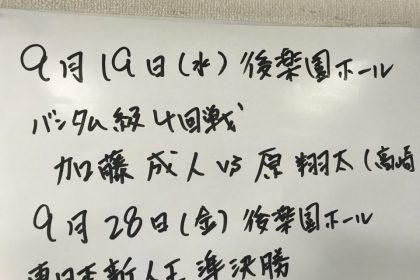 9月19日(水)後楽園ホール
バンタム級4回戦
加藤 成人 vs 原 翔太(高崎
9月28日(金)後楽園ホール
東日本新人王準決勝